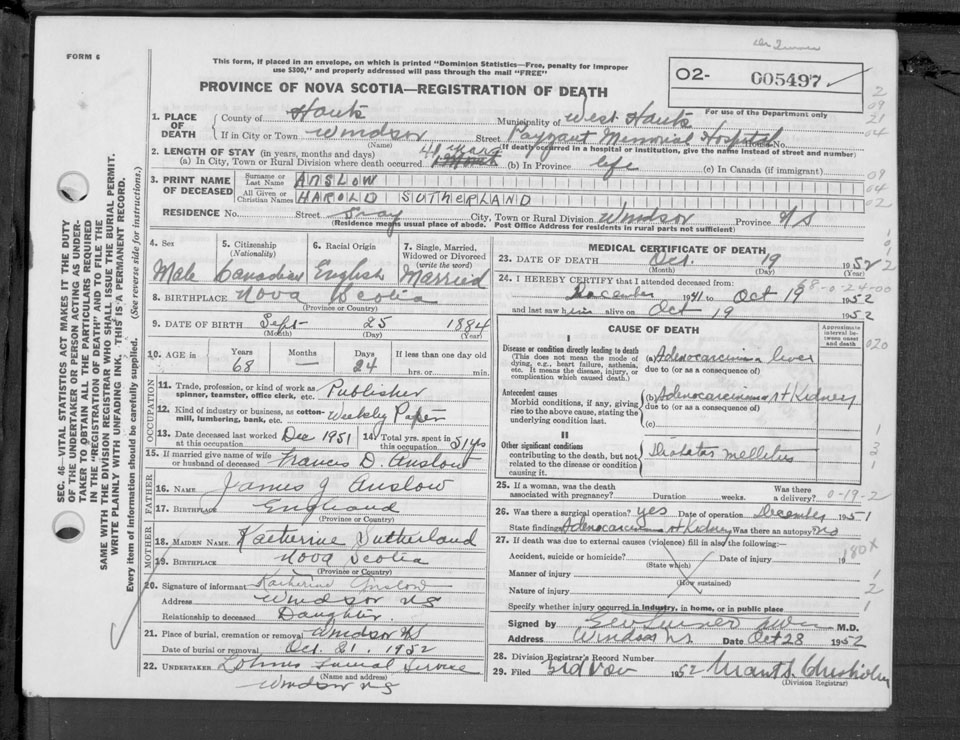 FORM 6
This form, if placed in an envelope, on which is printed "Dominion Statistics—Free, penalty for improper
use $300," and properly addressed will pass through the mail "FREE"
PROVINCE OF NOVA SCOTIA—REGISTRATION OF DEATH
O2- 005497
For use of the Department only
1. PLACE OF DEATH
County of Hants Municipality of West Hants
If in City or Town Windsor Street Payzant Memorial Hospital House No.
(Name) (If death occurred in a hospital or institution, give the name instead of street and number)
2. LENGTH OF STAY (in years, months and days)
(a) In City, Town or Rural Division where death occurred 41 years (b) In Province life (c) In Canada (if immigrant)
3. PRINT NAME OF DECEASED
Surname or Last Name ANSLOW
All Given or Christian Names HAROLD SUTHERLAND
RESIDENCE No. Street Gray City, Town or Rural Division Windsor Province NS
(Residence means usual place of abode. Post Office Address for residents in rural parts not sufficient)
4. Sex Male
5. Citizenship (Nationality) Canadian
6. Racial Origin English
7. Single, Married, Widowed or Divorced (write the word) Married
8. BIRTHPLACE Nova Scotia
(Province or Country)
9. DATE OF BIRTH Sept 25 1884
(Month) (Day) (Year)
10. AGE in Years 68 Months — Days 24 If less than one day old hrs. or min.
OCCUPATION
11. Trade, profession, or kind of work as spinner, teamster, office clerk, etc. Publisher
12. Kind of industry or business, as cotton-mill, lumbering, bank, etc. Weekly Paper
13. Date deceased last worked at this occupation Dec 1951 14. Total yrs. spent in this occupation 51 yrs
15. If married give name of wife or husband of deceased Francis D. Anslow
FATHER
16. NAME James J Anslow
17. BIRTHPLACE England
(Province or Country)
MOTHER
18. MAIDEN NAME Katherine Sutherland
19. BIRTHPLACE Nova Scotia
(Province or Country)
20. Signature of informant Katherine Anslow
Address Windsor NS
Relationship to deceased Daughter
21. Place of burial, cremation or removal Windsor NS
Date of burial or removal Oct. 21. 1952
22. UNDERTAKER Funeral Service
(Name and address)
Windsor NS
MEDICAL CERTIFICATE OF DEATH
23. DATE OF DEATH Oct. 19 1952
(Month) (Day) (Year)
24. I HEREBY CERTIFY that I attended deceased from
December 1941 to Oct 19 1952
and last saw him alive on Oct 19 1952
68-0-24-00
CAUSE OF DEATH
Approximate interval between onset and death
I
Disease or condition directly leading to death
(This does not mean the mode of dying, e.g., heart failure, asthenia, etc. It means the disease, injury, or complication which caused death.)
(a) Adenocarcinoma liver
due to (or as a consequence of)
Antecedent causes
Morbid conditions, if any, giving rise to the above cause, stating the underlying condition last.
(b) Adenocarcinoma rt Kidney
due to (or as a consequence of)
(c)
II
Other significant conditions
contributing to the death, but not related to the disease or condition causing it.
Diabetes Melletus
25. If a woman, was the death associated with pregnancy? Duration weeks. Was there a delivery? 0-19-2
26. Was there a surgical operation? yes Date of operation December 1951
State findings Adenocarcinoma rt Kidney Was there an autopsy? no
27. If death was due to external causes (violence) fill in also the following:—
Accident, suicide or homicide? Date of injury 19
(State which)
180x
Manner of injury
(How sustained)
Nature of injury
Specify whether injury occurred in industry, in home, or in public place
Signed by M.D.
Address Windsor N.S. Date Oct 28 1952
28. Division Registrar's Record Number
29. Filed 3rd Nov 1952
(Division Registrar)
SEC. 46—VITAL STATISTICS ACT MAKES IT THE DUTY
OF THE UNDERTAKER OR PERSON ACTING AS UNDER-
TAKER TO OBTAIN ALL THE PARTICULARS REQUIRED
IN THE "REGISTRATION OF DEATH" AND TO FILE THE
SAME WITH THE DIVISION REGISTRAR WHO SHALL ISSUE THE BURIAL PERMIT.
WRITE PLAINLY WITH UNFADING INK. THIS IS A PERMANENT RECORD.
Every item of information should be carefully supplied. (See reverse side for instructions.)